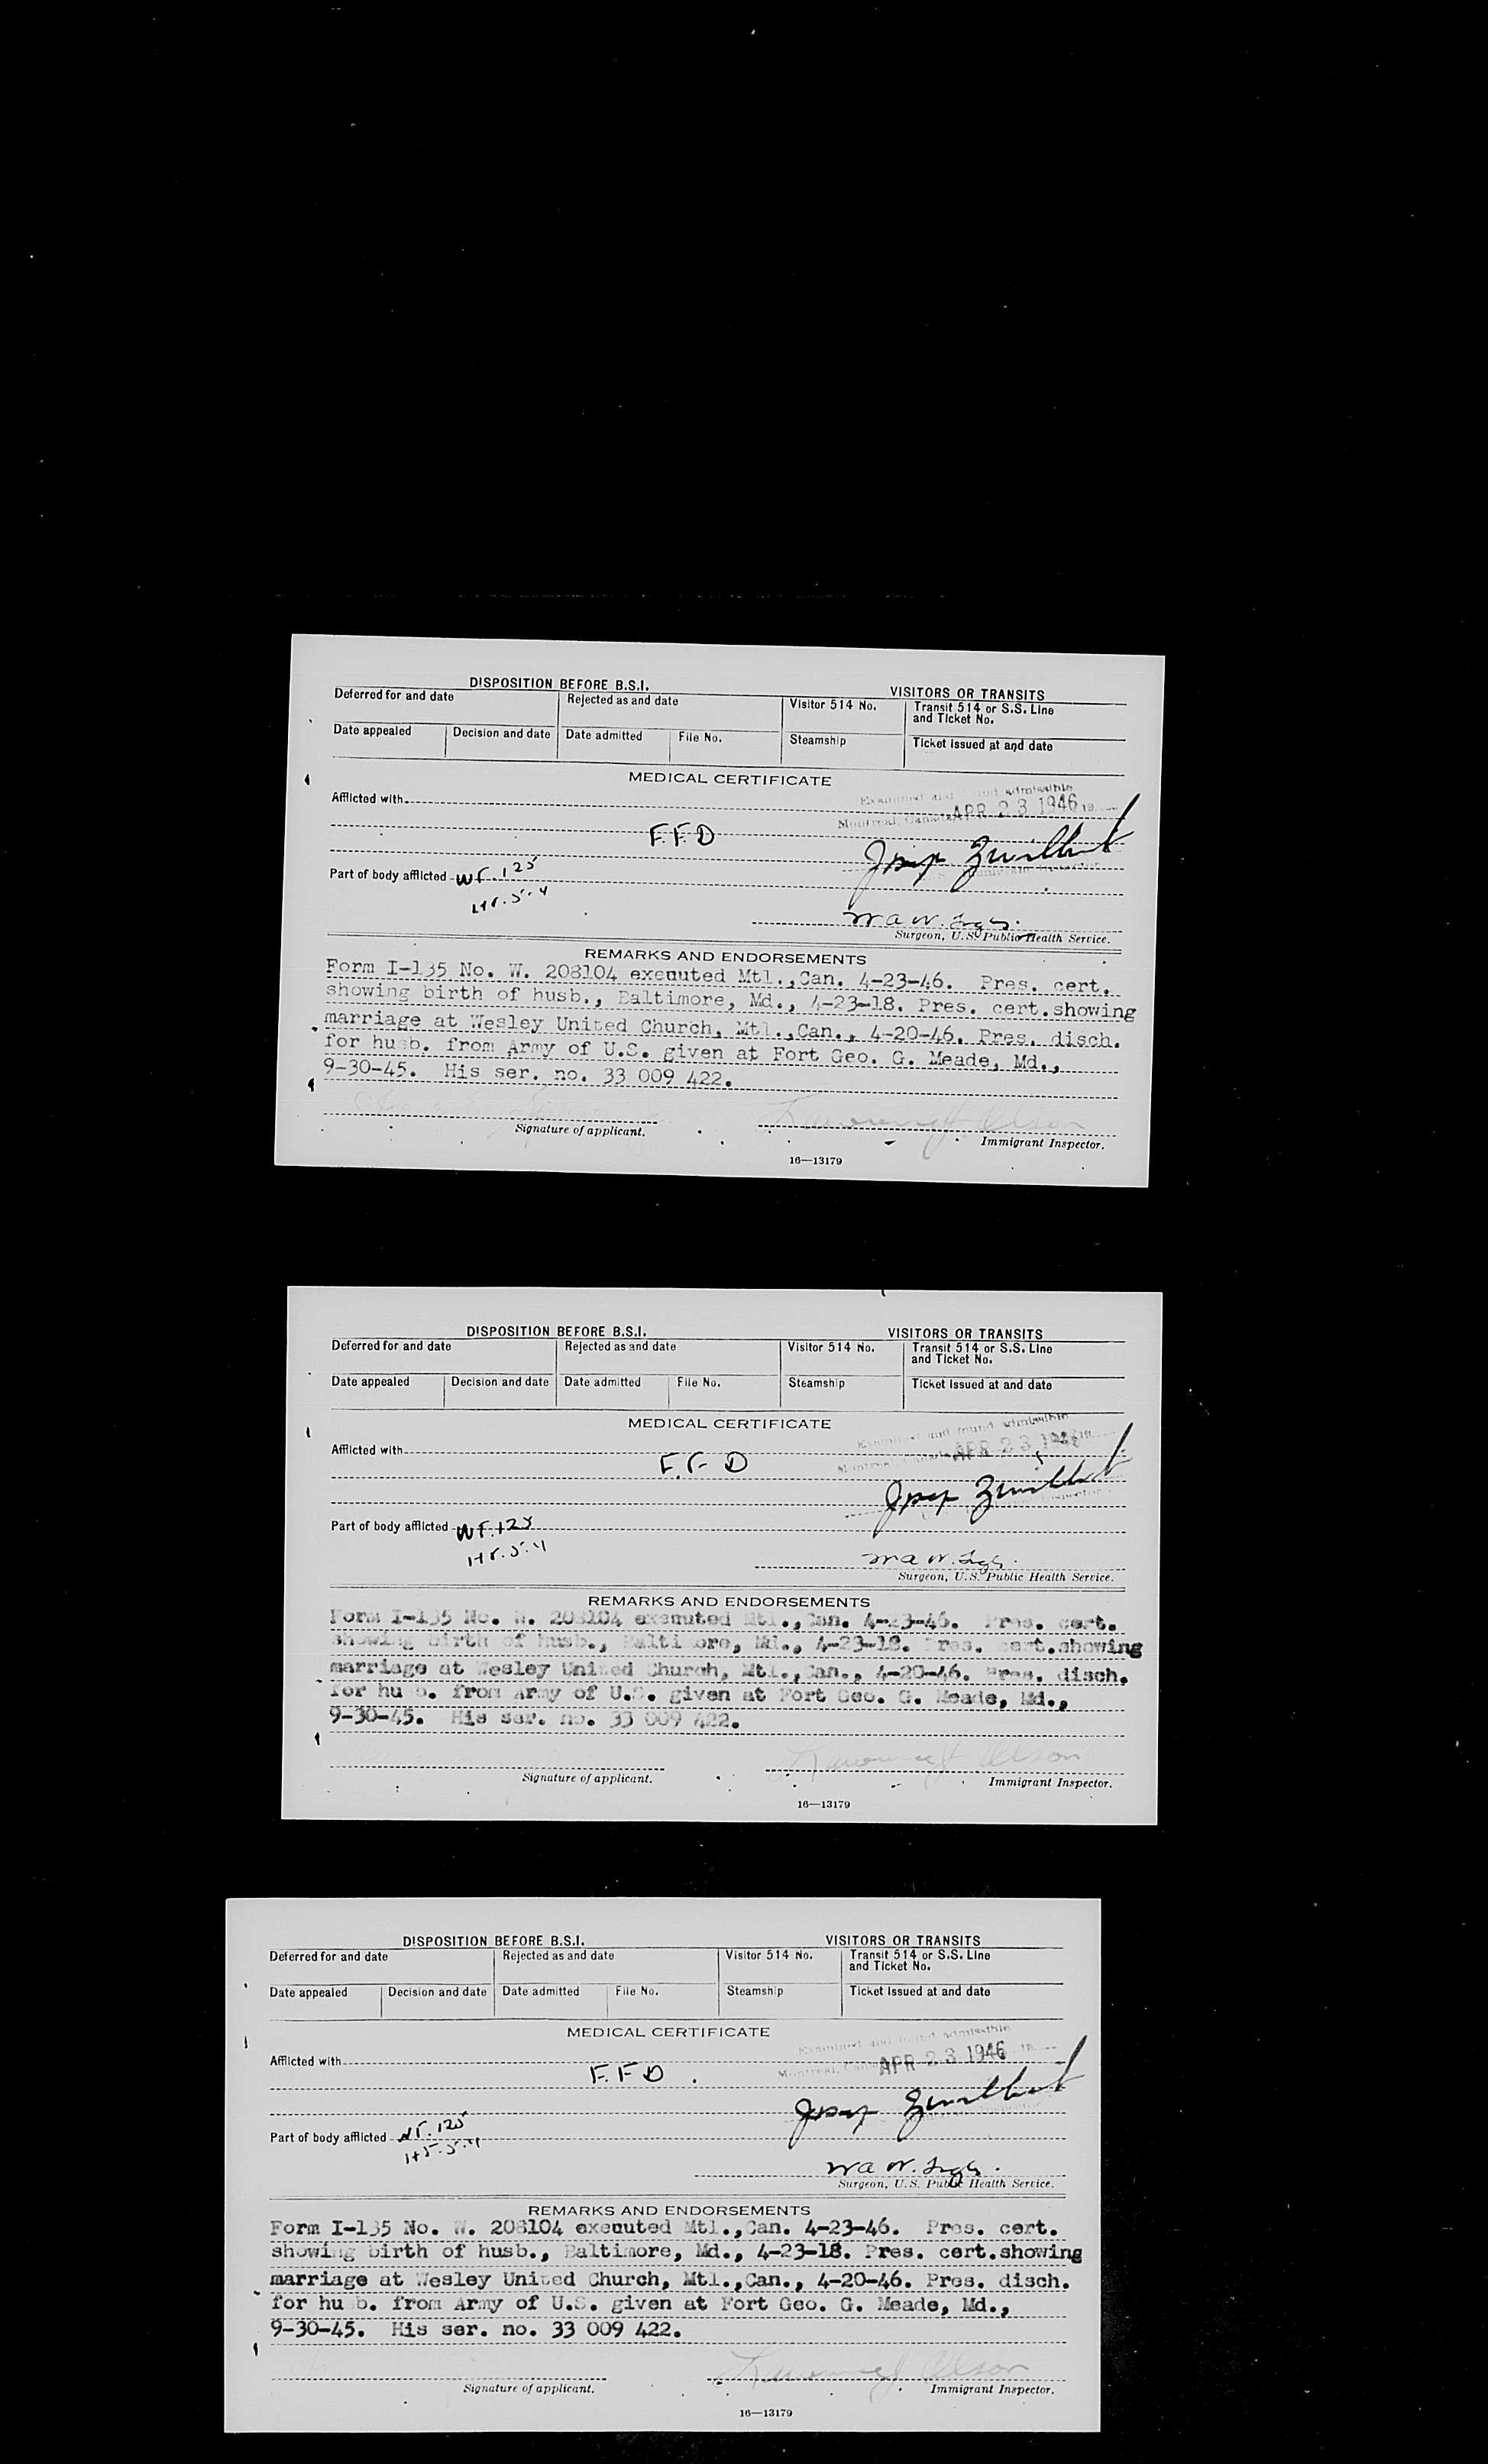 DISPOSITION BEFORE B.S.I. VISITORS OR TRANSITS
Deferred for and date Rejected as and date Visitor 514 No. Transit 514 or S.S. Line
and Ticket No.
Date appealed Decision and date Date admitted File No. Steamship Ticket issued at and date
MEDICAL CERTIFICATE
Examined and found admissible
Afflicted with
Montreal, Canada APR 23 1946 19
F.F.D
Part of body afflicted WT. 125
Ht. 5-4
Surgeon, U.S. Public Health Service.
REMARKS AND ENDORSEMENTS
Form I-135 No. W. 208104 exenuted Mtl.,Can. 4-23-46. Pres. cert.
showing birth of husb., Baltimore, Md., 4-23-18. Pres. cert.showing
marriage at Wesley United Church, Mtl.,Can., 4-20-46. Pres. disch.
for husb. from Army of U.S. given at Fort Geo. G. Meade, Md.,
9-30-45. His ser. no. 33 009 422.
Olson
Signature of applicant. Immigrant Inspector.
16—13179
DISPOSITION BEFORE B.S.I. VISITORS OR TRANSITS
Deferred for and date Rejected as and date Visitor 514 No. Transit 514 or S.S. Line
and Ticket No.
Date appealed Decision and date Date admitted File No. Steamship Ticket issued at and date
MEDICAL CERTIFICATE
Examined and found admissible
Afflicted with
Montreal, APR 23 1946 19
F.F.D
Part of body afflicted WT. 125
Ht. 5-4
Surgeon, U.S. Public Health Service.
REMARKS AND ENDORSEMENTS
Form I-135 No. W. 208104 exenuted Mtl.,Can. 4-23-46. Pres. cert.
showing birth of husb., Baltimore, Md., 4-23-18. Pres. cert.showing
marriage at Wesley United Church, Mtl.,Can., 4-20-46. Pres. disch.
for hu b. from Army of U.S. given at Fort Geo. G. Meade, Md.,
9-30-45. His ser. no. 33 009 422.
Olson
Signature of applicant. Immigrant Inspector.
16—13179
DISPOSITION BEFORE B.S.I. VISITORS OR TRANSITS
Deferred for and date Rejected as and date Visitor 514 No. Transit 514 or S.S. Line
and Ticket No.
Date appealed Decision and date Date admitted File No. Steamship Ticket issued at and date
MEDICAL CERTIFICATE
Examined and found admissible
Afflicted with
Montreal, Canada APR 23 1946 19
F.F.D.
Part of body afflicted WT. 125
Ht. 5-4
Surgeon, U.S. Public Health Service.
REMARKS AND ENDORSEMENTS
Form I-135 No. W. 208104 exenuted Mtl.,Can. 4-23-46. Pres. cert.
showing birth of husb., Baltimore, Md., 4-23-18. Pres. cert.showing
marriage at Wesley United Church, Mtl.,Can., 4-20-46. Pres. disch.
for hu b. from Army of U.S. given at Fort Geo. G. Meade, Md.,
9-30-45. His ser. no. 33 009 422.
Olson
Signature of applicant. Immigrant Inspector.
16—13179